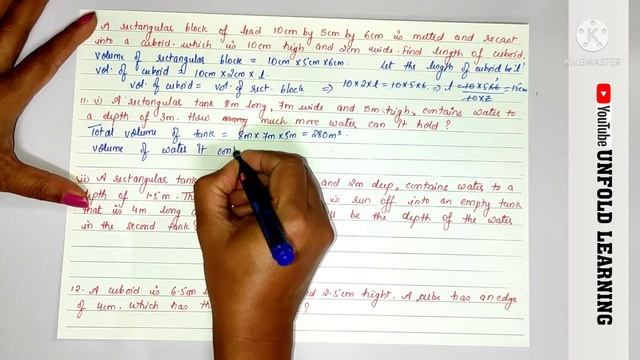 A rectangular block of lead 10cm by 5cm by 6cm is melted and recast
into a cuboid. which is 10cm high and 2cm wide. Find length of cuboid.
Volume of rectangular block = 10cm x 5cm x 6cm. Let the length of cuboid be 'l'
Vol. of cuboid = 10cm x 2cm x l.
Vol. of cuboid = Vol. of rect. block ⇒ 10 x 2 x l = 10 x 5 x 6 ⇒ l = 10 x 5 x 6 / 10 x 2 = 15cm
11. i) A rectangular tank 8m long, 7m wide and 5m high, contains water to
a depth of 3m. How much more water can it hold?
Total volume of tank = 8m x 7m x 5m = 280m³.
Volume of water it con
ii) A rectangular tank and 2m deep, contains water to a
depth of 1.5m. is run off into an empty tank
that is 4m long be the depth of the water
in the second tank?
12. A cuboid is 6.5cm 2.5cm hight. A cube has an edge
of 4cm. which has ?
KINEMASTER
YouTube UNFOLD LEARNING